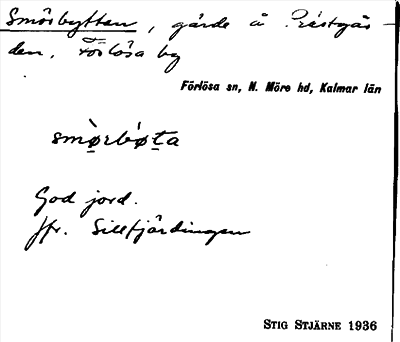 Smörbytten, gärde å Prästgår-
den, Förlösa by
Förlösa sn, N. Möre hd, Kalmar län
smø̀rbǿta
God jord.
Jfr. Sillfjärdingen
STIG STJÄRNE 1936